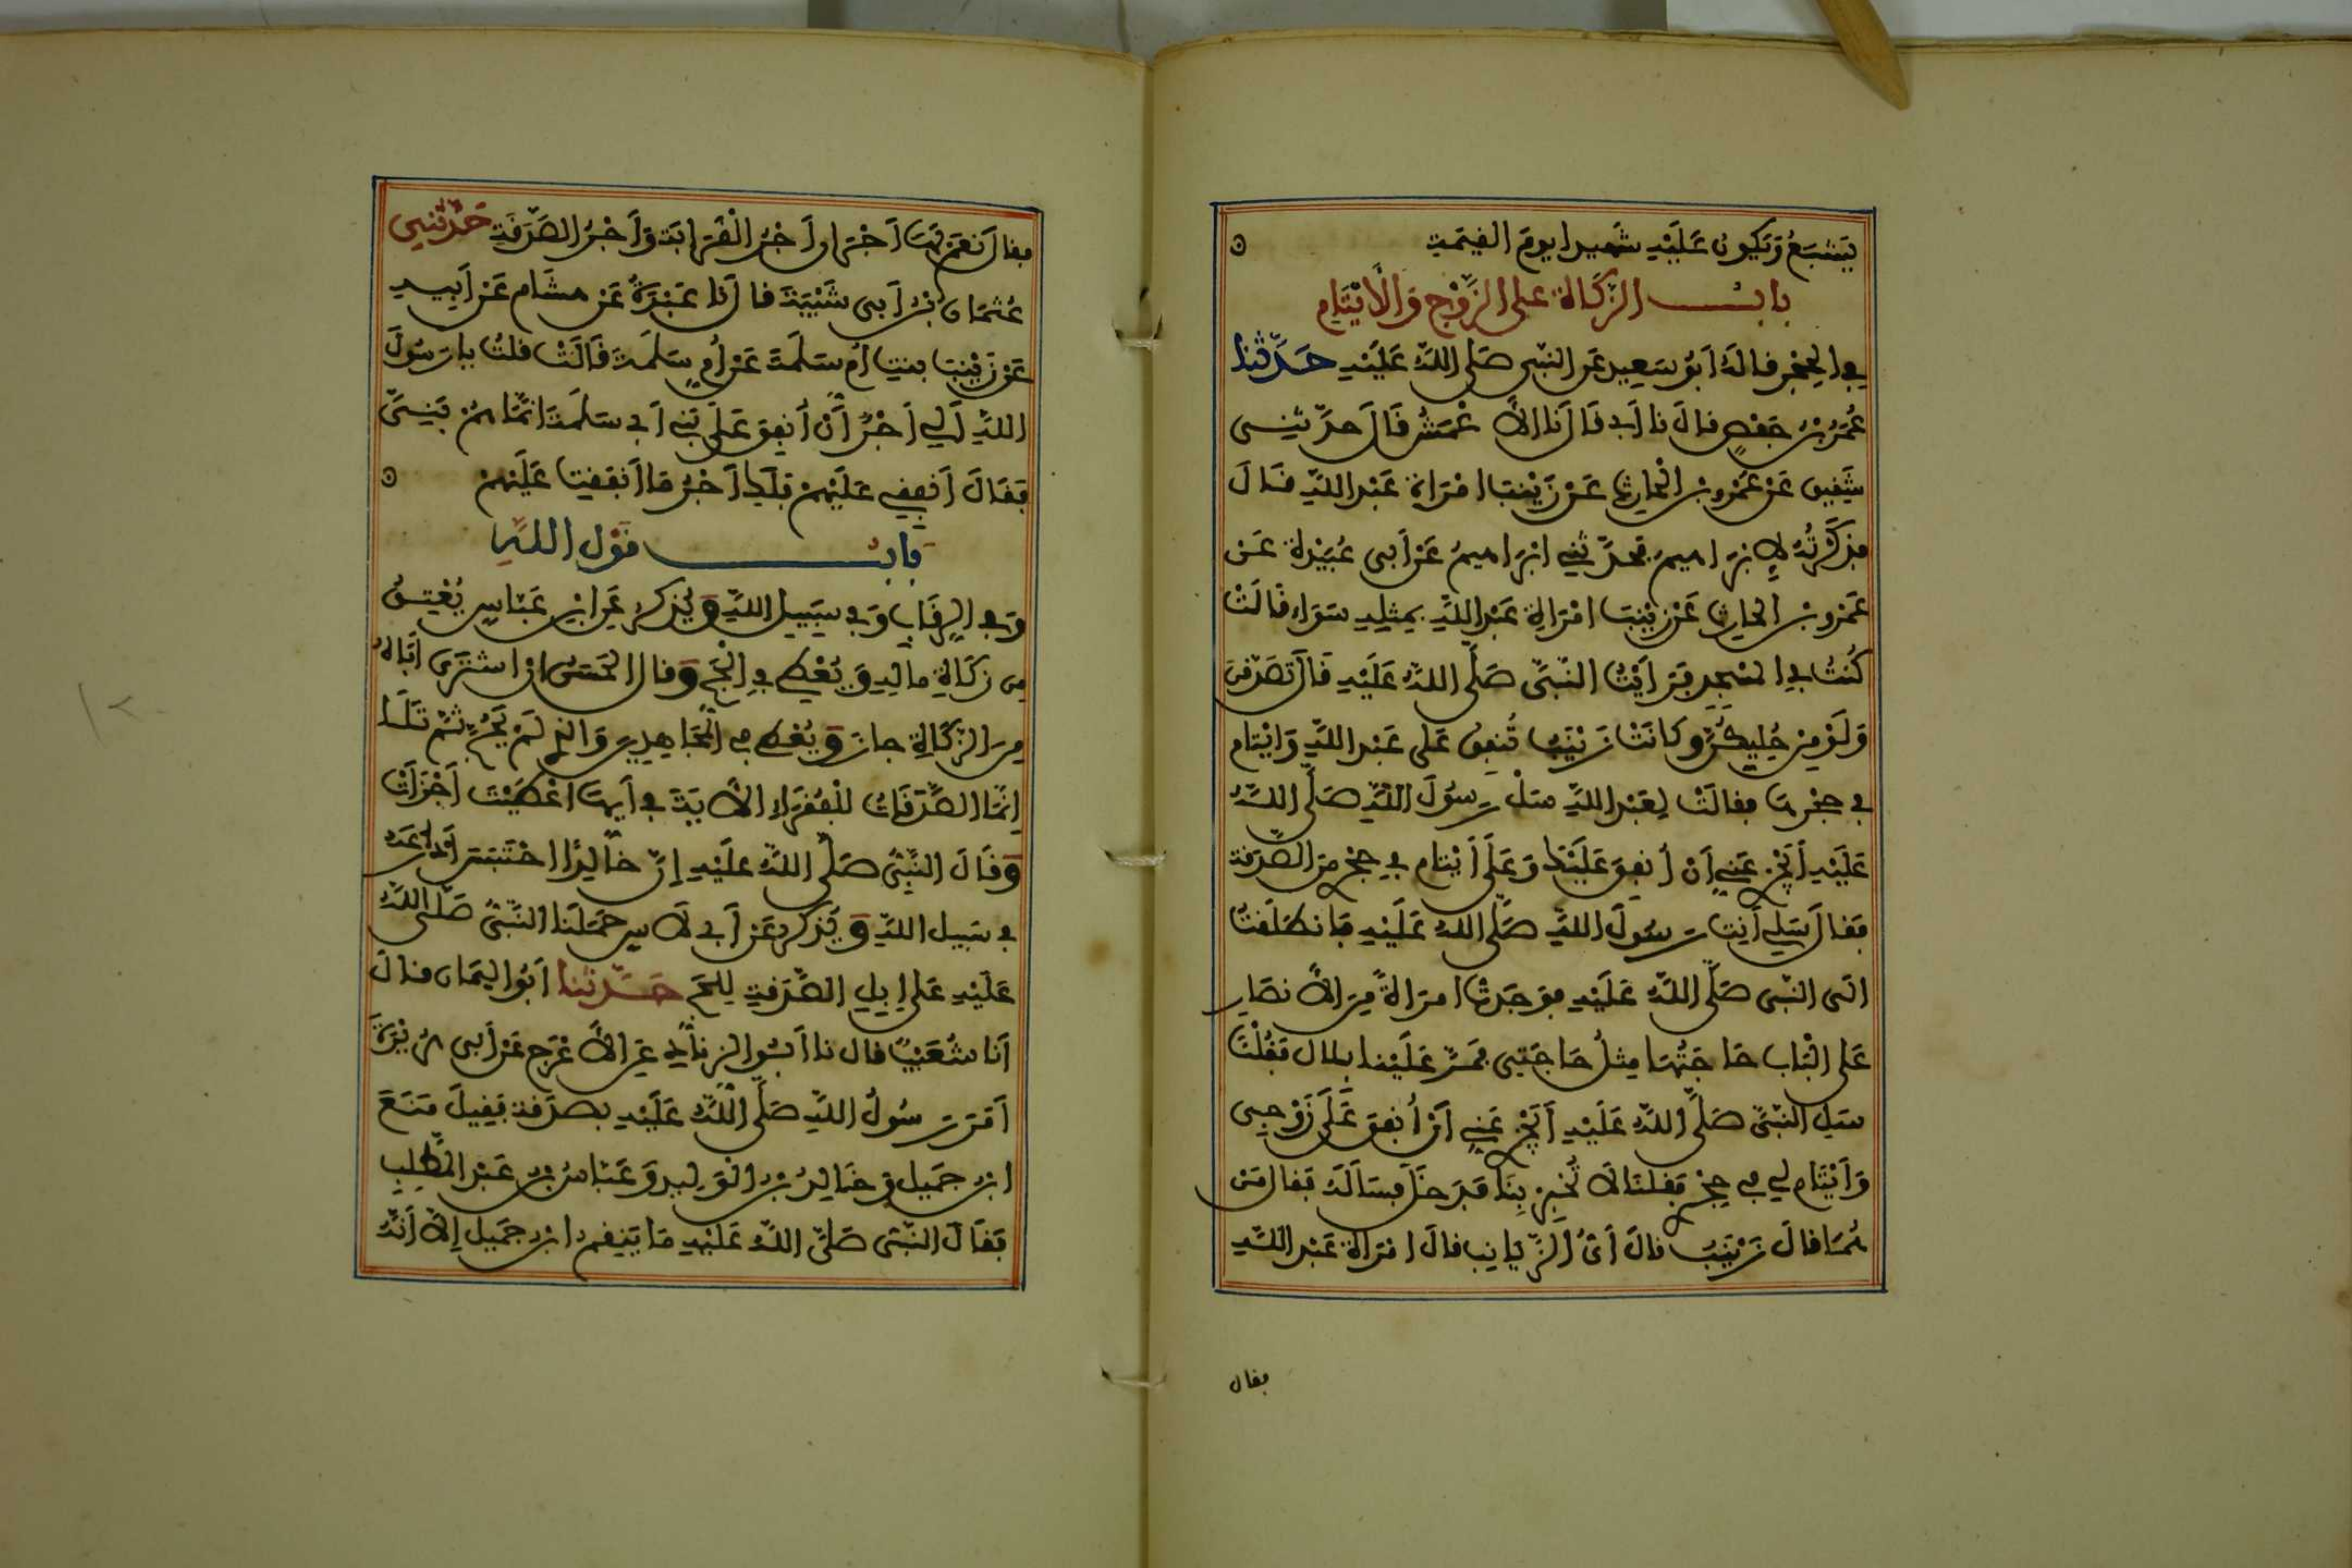 يَشْبَعُ وَيَكُونُ عَلَيْهِ شَهِيدا يومَ القيٰمة
بابُ الزكاة على الزَّوْجِ وَالْأَيْتَامِ
في الحِجْرِ قالهُ أبُو سَعِيدٍ عن النبي صَلى اللهُ عَلَيْهِ حَدَّثنا
عُمَرُ بنُ حَفْصٍ قال نا أبي قَال نا الأعْمَشُ قَال حدّثني
شَقِيق عَنْ عَمْرِو بنِ الْحَارِثِ عَنْ زَيْنَبَ امْرَأة عَبْدِ اللهِ قَالَ
فذكَرْتُهُ لإبْرَاهِيمَ فحدَّثني ابْرَاهِيمُ عَنْ أبي عُبَيْدة عَن
عَمْرِو بنِ الحارِثِ عَنْ زَيْنَبَ امْرَأةِ عَبْدِ اللهِ بِمِثْلِهِ سَوَاء قَالَتْ
كُنتُ في الْمَسْجِدِ فَرَأيْتُ النَّبِيَّ صَلَّى اللهُ عَلَيْهِ فَقَال تَصَدَّقْنَ
وَلَوْ مِنْ حُلِيِّكُنَّ وكانَتْ زَيْنَبُ تُنفِقُ عَلى عَبْدِ اللهِ وَأيْتَام
في حِجْرِهَا فقالَتْ لِعَبْدِ اللهِ سَلْ رَسُولَ اللهِ صَلَّى اللهُ
عَلَيْهِ أيَجْزِي عَنِّي أنْ أُنفِقَ عَلَيْكَ وَعَلَى أيْتَام في حِجْرِي منَ الصَّدَقَة
فَقال سَلِي أنتِ رَسُولَ اللهِ صَلَّى اللهُ عَلَيْهِ فَانطَلَقْتُ
الَى النبي صَلَّى اللهُ عَلَيْهِ فوَجَدتُّ امرَأةً مِنَ الأنصَارِ
عَلى الْبَابِ حَاجَتُهَا مِثْلُ حَاجَتِي فمَرَّ عَلَيْنا بلال فَقُلْنَا
سَلِ النبيَّ صَلَّى اللهُ عَلَيْهِ أيَجْزِي عَنِّي أنْ أُنفِقَ عَلَى زَوْجِي
وَأيْتَام لِي في حِجْرِي فقلنا لَا تُخْبِرْ بِنَا فَدَخَلَ فَسَألَهُ فقال مَنْ
هُمَا قالَ زَيْنَبُ قالَ أيُّ الزَّيَانِبِ قالَ امْرَأة عَبْدِ اللهِ
فقال
فقال نَعَمْ لَهَا أَجْرَان أَجْرُ الْقَرَابَة وَأَجْرُ الصَّدَقَةِ حَدَّثَنِي
عُثمَانُ بْنُ أبي شَيْبَةَ قال نا عَبْدَةُ عَن هشَام عَن أبِيهِ
عَنْ زَيْنَبَ بنتِ أم سَلَمَةَ عَنْ أُمِّ سَلَمَة قَالَتْ قلتُ يا رَسُولَ
اللهِ ألِي أجْرٌ أنْ أُنفِقَ عَلَى بَنِي أبي سَلَمَة انَّمَا هُمْ بَنِيَّ
فَقَالَ أنفِقِي عَلَيْهِمْ فَلَكِ أجْرُ مَا أنفَقْتِ عَلَيْهِمْ
بَابُ قَوْلِ اللهِ
وَفي الرِّقَابِ وَفي سَبِيلِ اللهِ وَيُذكَرُ عَن ابْنِ عَبَّاسٍ يُعْتِقُ
مِن زكَاةِ مالِهِ وَيُعْطِي في الْحَجِّ وَقال الحَسَنُ انِ اشترَى أبَاهُ
مِنَ الزَّكَاةِ جازَ وَيُعْطِي في الْمُجَاهِدِينَ وَالذِي لَمْ يَحُجَّ ثمّ تَلَا
انَّمَا الصَّدَقَاتُ لِلْفُقَرَاءِ الأَيَةَ في أيِّهَا أعْطَيْتَ أجْزَأتْ
وَقَالَ النَّبِيُّ صَلَّى اللهُ عَلَيْهِ إنَّ خَالِدًا احْتَبَسَ أدْرَاعَهُ
في سَبِيلِ اللهِ وَيُذكَرُ عَن أبي لَاسٍ حَمَلَنا النَّبِيُّ صَلَّى اللهُ
عَلَيْهِ عَلى إبِلِ الصَّدَقَةِ لِلحَجِّ حَدَّثنا أبُو اليَمَان قالَ
أنا شُعَيْبٌ قال نا أبُو الزِّنَادِ عَنِ الأعْرَجِ عَنْ أبي هُرَيْرَةَ
أمَرَ رَسُولُ اللهِ صَلَّى اللهُ عَلَيْهِ بصَدَقَة فَقِيلَ مَنَعَ
ابْنُ جَمِيلٍ وَخَالِدُ بْنُ الْوَلِيدِ وَعَبَّاسُ بْنُ عَبْدِ الْمُطَّلِبِ
فَقَالَ النَّبِيُّ صَلَّى اللهُ عَلَيْهِ مَا يَنقِمُ ابْنُ جَمِيلٍ إلاَّ أنَّهُ